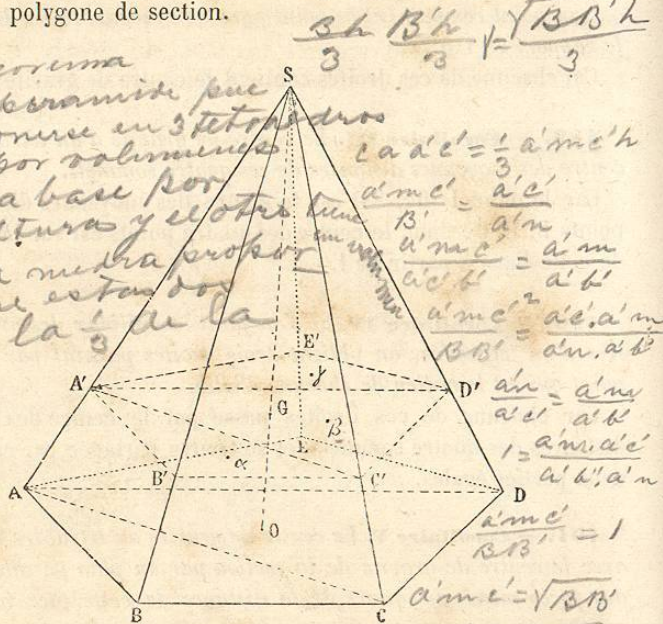 polygone de section.
Bh/3 B'h/3 √BB'h/3
S
en 3 tetraedros
por volumenes
a base por
tura y el otro tiene
un volumen
media propor
e estas dos
la 1/3 de la
c a a' c' = 1/3 a' m c' h
a' m c'/B' = a' c'/a' n
a' m c'/a' c' b' = a' m/a' b'
a' m c'²/BB' = a' c' . a' m/a' n . a' b'
a' n/a' c' = a' m/a' b'
1 = a' m . a' c'/a' b' . a' n
a' m c'/BB' = 1
a' m c' = √BB'
E'
γ
A'
D'
G
β
E
α
B'
C'
A
D
O
B
C